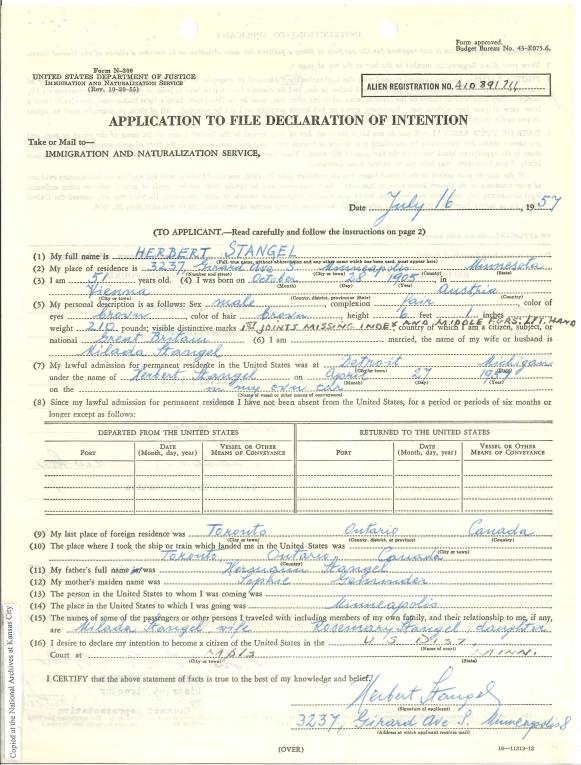 Form approved.
Budget Bureau No. 43-R075.6.
Form N-300
UNITED STATES DEPARTMENT OF JUSTICE
IMMIGRATION AND NATURALIZATION SERVICE
(Rev. 10-20-55)
ALIEN REGISTRATION NO. A10 391 711
APPLICATION TO FILE DECLARATION OF INTENTION
Take or Mail to—
IMMIGRATION AND NATURALIZATION SERVICE,
Date July 16, 1957
(TO APPLICANT.—Read carefully and follow the instructions on page 2)
(1) My full name is HERBERT STANGEL
(Full, true name, without abbreviation, and any other name which has been used, must appear here)
(2) My place of residence is 3237 Girard Ave S. Minneapolis Minnesota
(Number and street) (City or town) (County) (State)
(3) I am 51 years old. (4) I was born on October 28 1905, in
(Month) (Day) (Year)
Vienna Austria
(City or town) (County, district, province or State) (Country)
(5) My personal description is as follows: Sex male, complexion fair, color of
eyes brown, color of hair brown, height 6 feet 1 inches
weight 210 pounds; visible distinctive marks 1ST JOINTS MISSING INDEX AND MIDDLE FGRS. LFT. HAND country of which I am a citizen, subject, or
national Great Britain (6) I am married, the name of my wife or husband is
Milada Stangel
(7) My lawful admission for permanent residence in the United States was at Detroit Michigan
(City or town) (State)
under the name of Herbert Stangel on April 27 1957
(Month) (Day) (Year)
on the in my own car
(Name of vessel or other means of conveyance)
(8) Since my lawful admission for permanent residence I have not been absent from the United States, for a period or periods of six months or
longer except as follows:
DEPARTED FROM THE UNITED STATES RETURNED TO THE UNITED STATES
PORT DATE (Month, day, year) VESSEL OR OTHER MEANS OF CONVEYANCE PORT DATE (Month, day, year) VESSEL OR OTHER MEANS OF CONVEYANCE
(9) My last place of foreign residence was Toronto Ontario Canada
(City or town) (County, district, or province) (Country)
(10) The place where I took the ship or train which landed me in the United States was
(City or town)
Toronto, Ontario, Canada
(Country)
(11) My father's full name was Hermann Stangel
(12) My mother's maiden name was Sophie
(13) The person in the United States to whom I was coming was
(14) The place in the United States to which I was going was Minneapolis
(15) The names of some of the passengers or other persons I traveled with including members of my own family, and their relationship to me, if any,
are Milada Stangel, wife Rosemary Stangel, daughter
(16) I desire to declare my intention to become a citizen of the United States in the U S DIST
(Name of court)
Court at MPLS MINN.
(City or town) (State)
I CERTIFY that the above statement of facts is true to the best of my knowledge and belief.
Herbert Stangel
(Signature of applicant)
3237, Girard Ave S, Minneapolis 8
(Address at which applicant receives mail)
(OVER)
16—11312-12
Copied at the National Archives at Kansas City